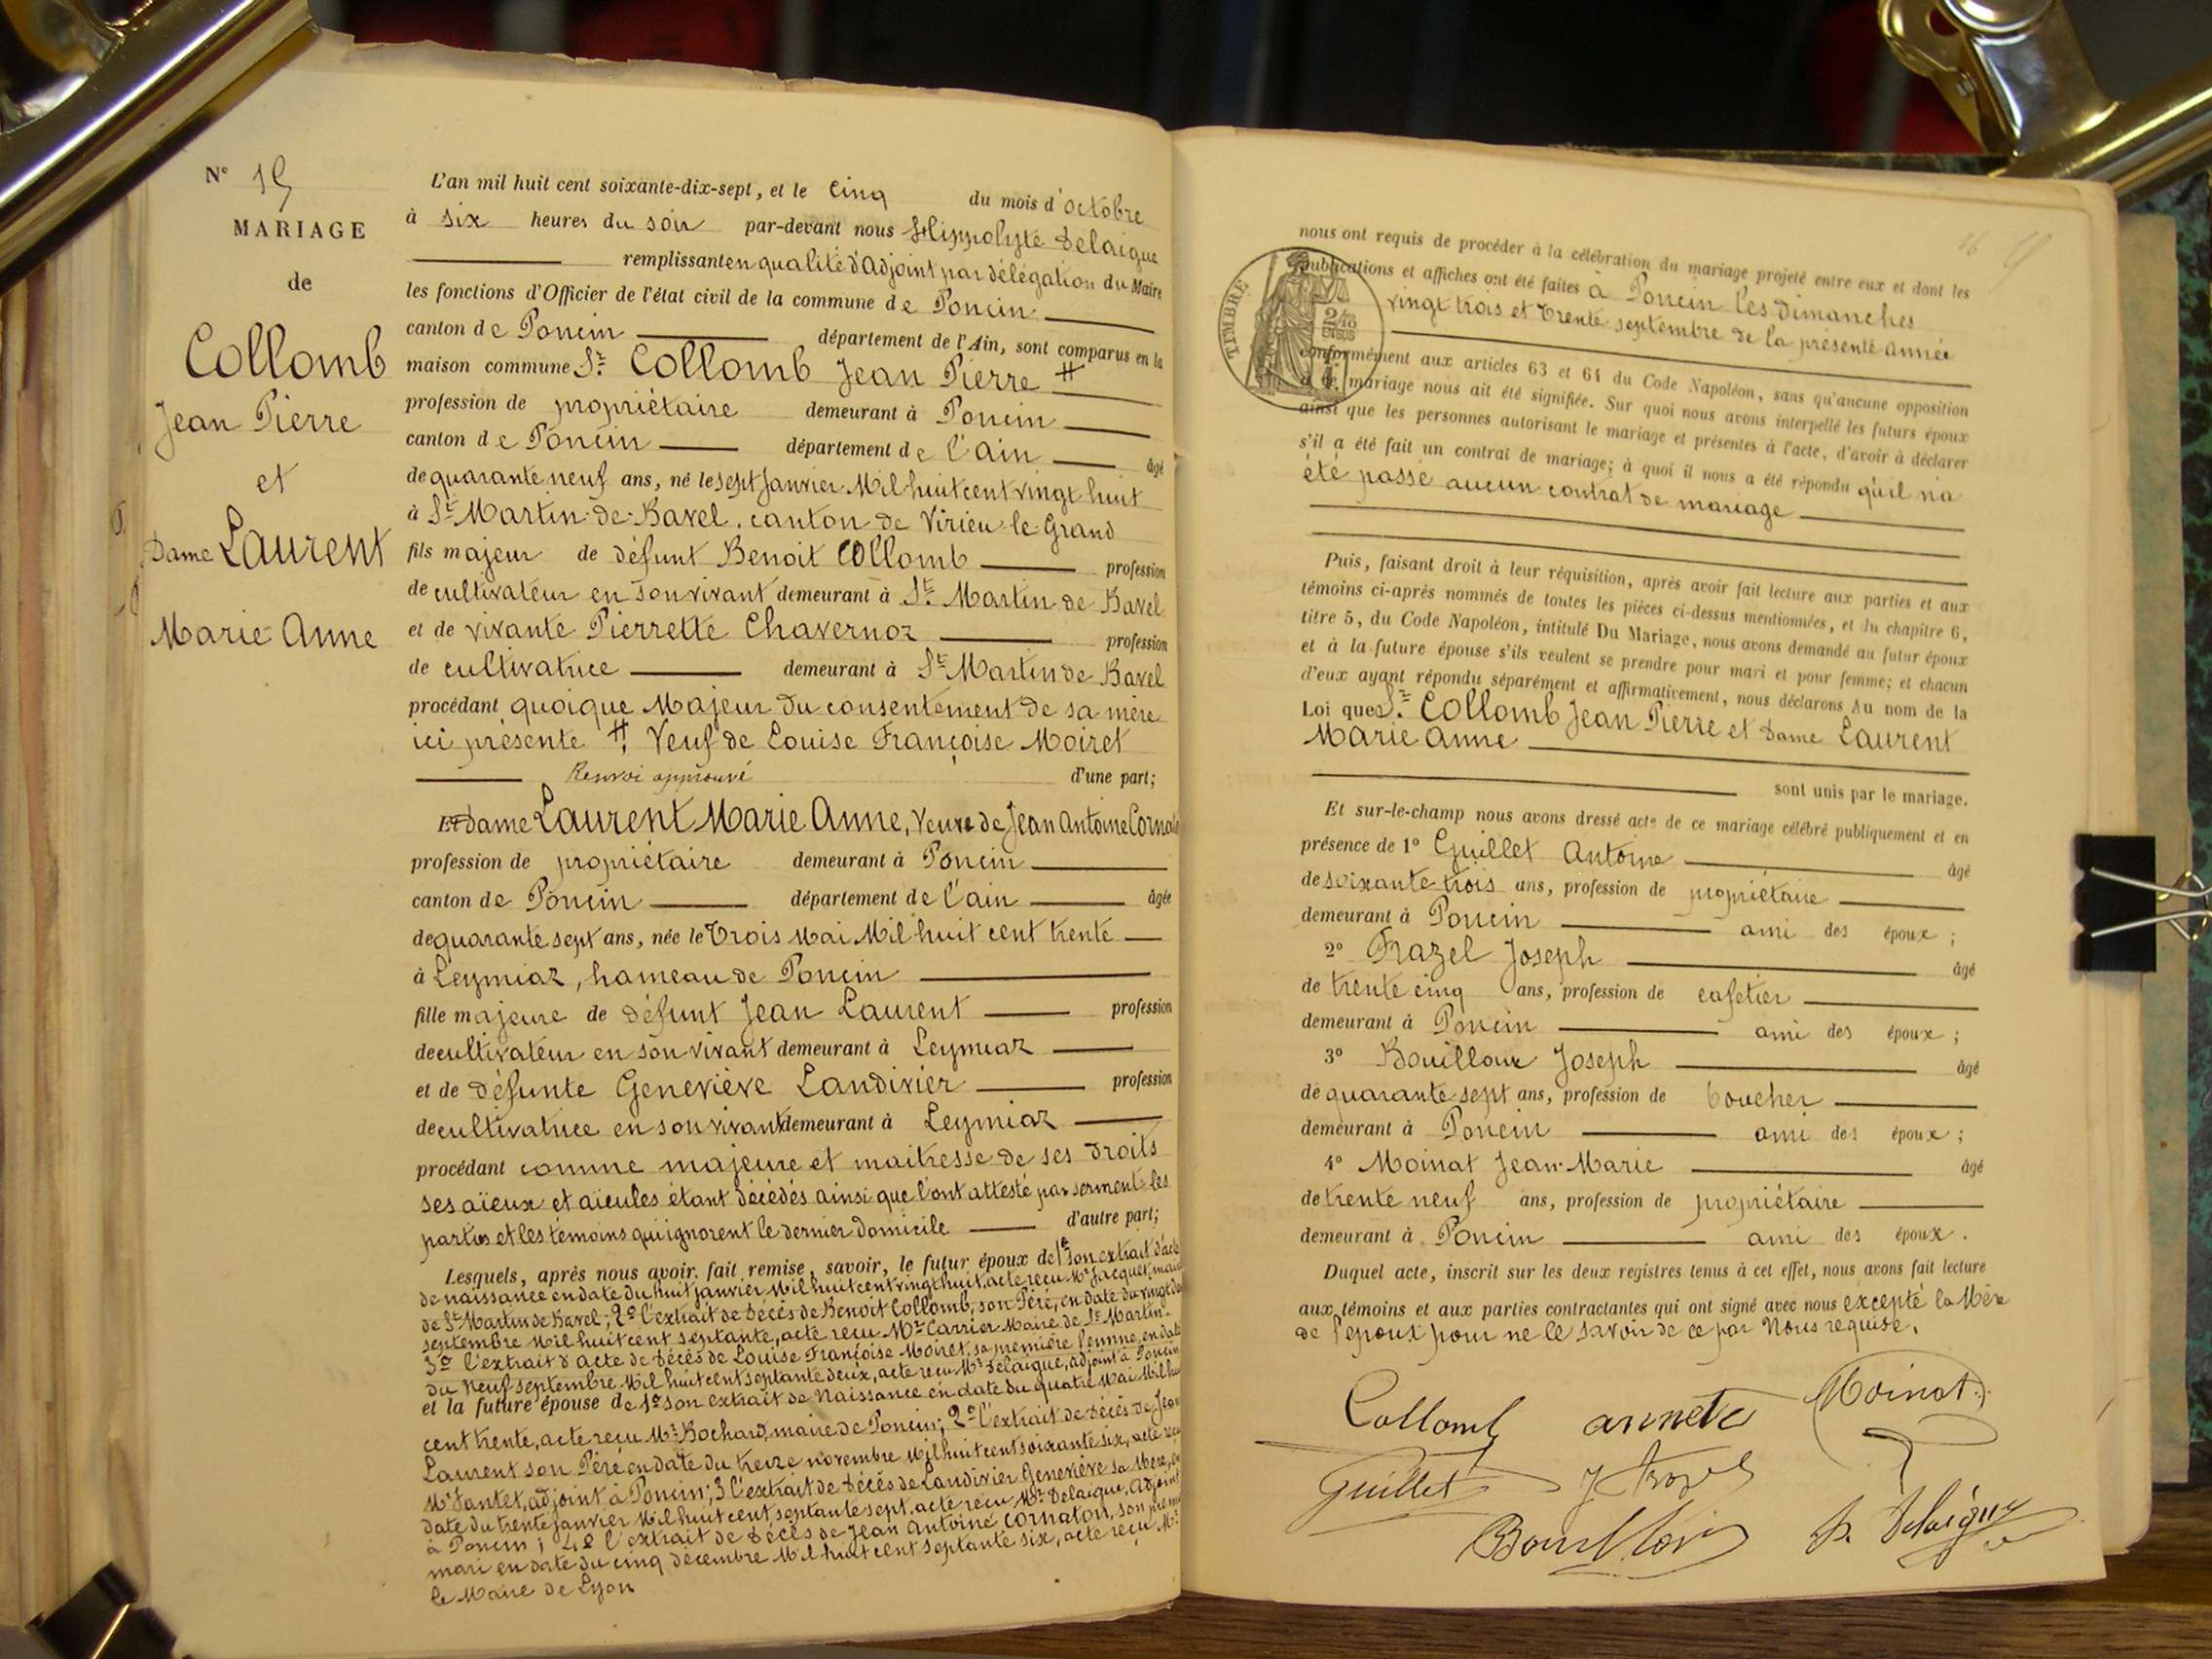 N° 19
MARIAGE
de
Collomb
Jean Pierre
et
Dame Laurent
Marie Anne
L'an mil huit cent soixante-dix-sept, et le cinq du mois d'octobre
à six heures du soir par-devant nous Hippolyte Delaigue
remplissant en qualité d'adjoint par délégation du Maire
les fonctions d'Officier de l'état civil de la commune de Poncin
canton de Poncin département de l'Ain, sont comparus en la
maison commune Sr. Collomb Jean Pierre #
profession de propriétaire demeurant à Poncin
canton de Poncin département de l'Ain âgé
de quarante neuf ans, né le sept Janvier Mil huit cent vingt huit
à St. Martin-de-Bavel, canton de Virieu-le-Grand
fils majeur de défunt Benoit Collomb profession
de cultivateur en son vivant demeurant à St. Martin de Bavel
et de vivante Pierrette Chavernoz profession
de cultivatrice demeurant à St. Martin de Bavel
procédant quoique Majeur du consentement de sa mère
ici présente #. Veuf de Louise Françoise Moiret
Renvoi approuvé d'une part;
Et Dame Laurent Marie Anne, Veuve de Jean Antoine Cornaton
profession de propriétaire demeurant à Poncin
canton de Poncin département de l'ain âgée
de quarante sept ans, née le Trois Mai Mil huit cent trente
à Leymiaz, hameau de Poncin
fille majeure de défunt Jean Laurent profession
de cultivateur en son vivant demeurant à Leymiaz
et de défunte Geneviève Landivier profession
de cultivatrice en son vivant demeurant à Leymiaz
procédant comme majeure et maitresse de ses droits
ses aïeux et aïeules étant décédés ainsi que l'ont attesté par serment les
parties et les témoins qui ignorent le dernier domicile d'autre part;
Lesquels, après nous avoir fait remise, savoir, le futur époux de 1° son extrait d'acte
de naissance en date du huit janvier Mil huit cent vingt huit, acte reçu Mr Jacquet, maire
de St. Martin de Bavel; 2° l'extrait de décès de Benoit Collomb, son Père, en date du vingt
septembre Mil huit cent septante, acte reçu Mr. Carrier Maire de St. Martin.
3° l'extrait d'acte de décès de Louise Françoise Moiret, sa première femme, en date
du neuf septembre Mil huit cent septante deux, acte reçu Mr Delaigue, adjoint à Poncin
et la future épouse de 1° son extrait de Naissance en date du quatre Mai Mil huit
cent trente, acte reçu Mr. Bochard, maire de Poncin; 2° l'extrait de décès de Jean
Laurent son Père en date du treize novembre Mil huit cent soixante six, acte reçu
Mr Jantet, adjoint à Poncin; 3 l'extrait de décès de Landivier Geneviève sa Mère, en
date du trente janvier Mil huit cent septante sept, acte reçu Mr. Delaigue, Adjoint
à Poncin; 4° l'extrait de décès de Jean Antoine Cornaton, son premier
mari en date du cinq décembre Mil huit cent septante six, acte reçu Mr.
le Maire de Lyon
nous ont requis de procéder à la célébration du mariage projeté entre eux et dont les
TIMBRE
2/10
EN SUS
publications et affiches ont été faites à Poncin les dimanches
vingt trois et trente septembre de la présente année
conformément aux articles 63 et 64 du Code Napoléon, sans qu'aucune opposition
à ce mariage nous ait été signifiée. Sur quoi nous avons interpellé les futurs époux
ainsi que les personnes autorisant le mariage et présentes à l'acte, d'avoir à déclarer
s'il a été fait un contrat de mariage; à quoi il nous a été répondu qu'il n'a
été passé aucun contrat de mariage
Puis, faisant droit à leur réquisition, après avoir fait lecture aux parties et aux
témoins ci-après nommés de toutes les pièces ci-dessus mentionnées, et du chapitre 6,
titre 5, du Code Napoléon, intitulé Du Mariage, nous avons demandé au futur époux
et à la future épouse s'ils veulent se prendre pour mari et pour femme; et chacun
d'eux ayant répondu séparément et affirmativement, nous déclarons Au nom de la
Loi que Sr. Collomb Jean Pierre et Dame Laurent
Marie Anne
sont unis par le mariage.
Et sur-le-champ nous avons dressé acte de ce mariage célébré publiquement et en
présence de 1° Guillet Antoine âgé
de soixante trois ans, profession de propriétaire
demeurant à Poncin ami des époux;
2° Frazel Joseph âgé
de trente cinq ans, profession de cafetier
demeurant à Poncin ami des époux;
3° Bouilloux Joseph âgé
de quarante sept ans, profession de boucher
demeurant à Poncin ami des époux;
4° Moinat Jean-Marie âgé
de trente neuf ans, profession de propriétaire
demeurant à Poncin ami des époux.
Duquel acte, inscrit sur les deux registres tenus à cet effet, nous avons fait lecture
aux témoins et aux parties contractantes qui ont signé avec nous excepté la Mère
de l'époux pour ne le savoir de ce par Nous requise.
Collomb annete Moinat
Guillet
H. Delaigue